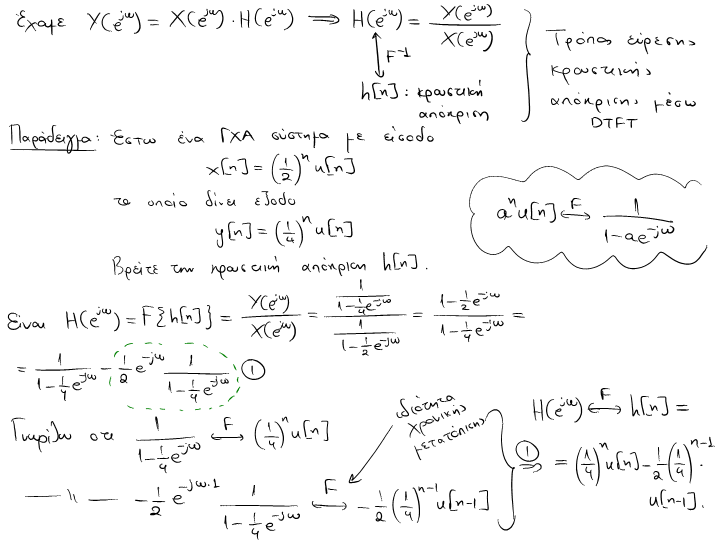 Έχουμε Y(e^{jω}) = X(e^{jω}) · H(e^{jω}) ⟹ H(e^{jω}) = Y(e^{jω}) / X(e^{jω})
↕ F^{-1}
h[n] : κρουστική απόκριση
Τρόπος εύρεσης
κρουστικής
απόκρισης μέσω
DTFT
Παράδειγμα: Έστω ένα ΓΧΑ σύστημα με είσοδο
x[n] = (1/2)^n u[n]
το οποίο δίνει έξοδο
y[n] = (1/4)^n u[n]
Βρείτε την κρουστική απόκριση h[n].
a^n u[n] ⟷^F 1 / (1 - ae^{-jω})
Είναι H(e^{jω}) = F{h[n]} = Y(e^{jω}) / X(e^{jω}) = (1 / (1 - 1/4 e^{-jω})) / (1 / (1 - 1/2 e^{-jω})) = (1 - 1/2 e^{-jω}) / (1 - 1/4 e^{-jω}) =
= 1 / (1 - 1/4 e^{-jω}) - 1/2 e^{-jω} 1 / (1 - 1/4 e^{-jω}) ①
Γνωρίζω ότι 1 / (1 - 1/4 e^{-jω}) ⟷^F (1/4)^n u[n]
ιδιότητα
χρονικής
μετατόπισης
— 〃 — - 1/2 e^{-jω·1} 1 / (1 - 1/4 e^{-jω}) ⟷^F - 1/2 (1/4)^{n-1} u[n-1]
H(e^{jω}) ⟷^F h[n] =
①⟹ = (1/4)^n u[n] - 1/2 (1/4)^{n-1} ·
u[n-1].